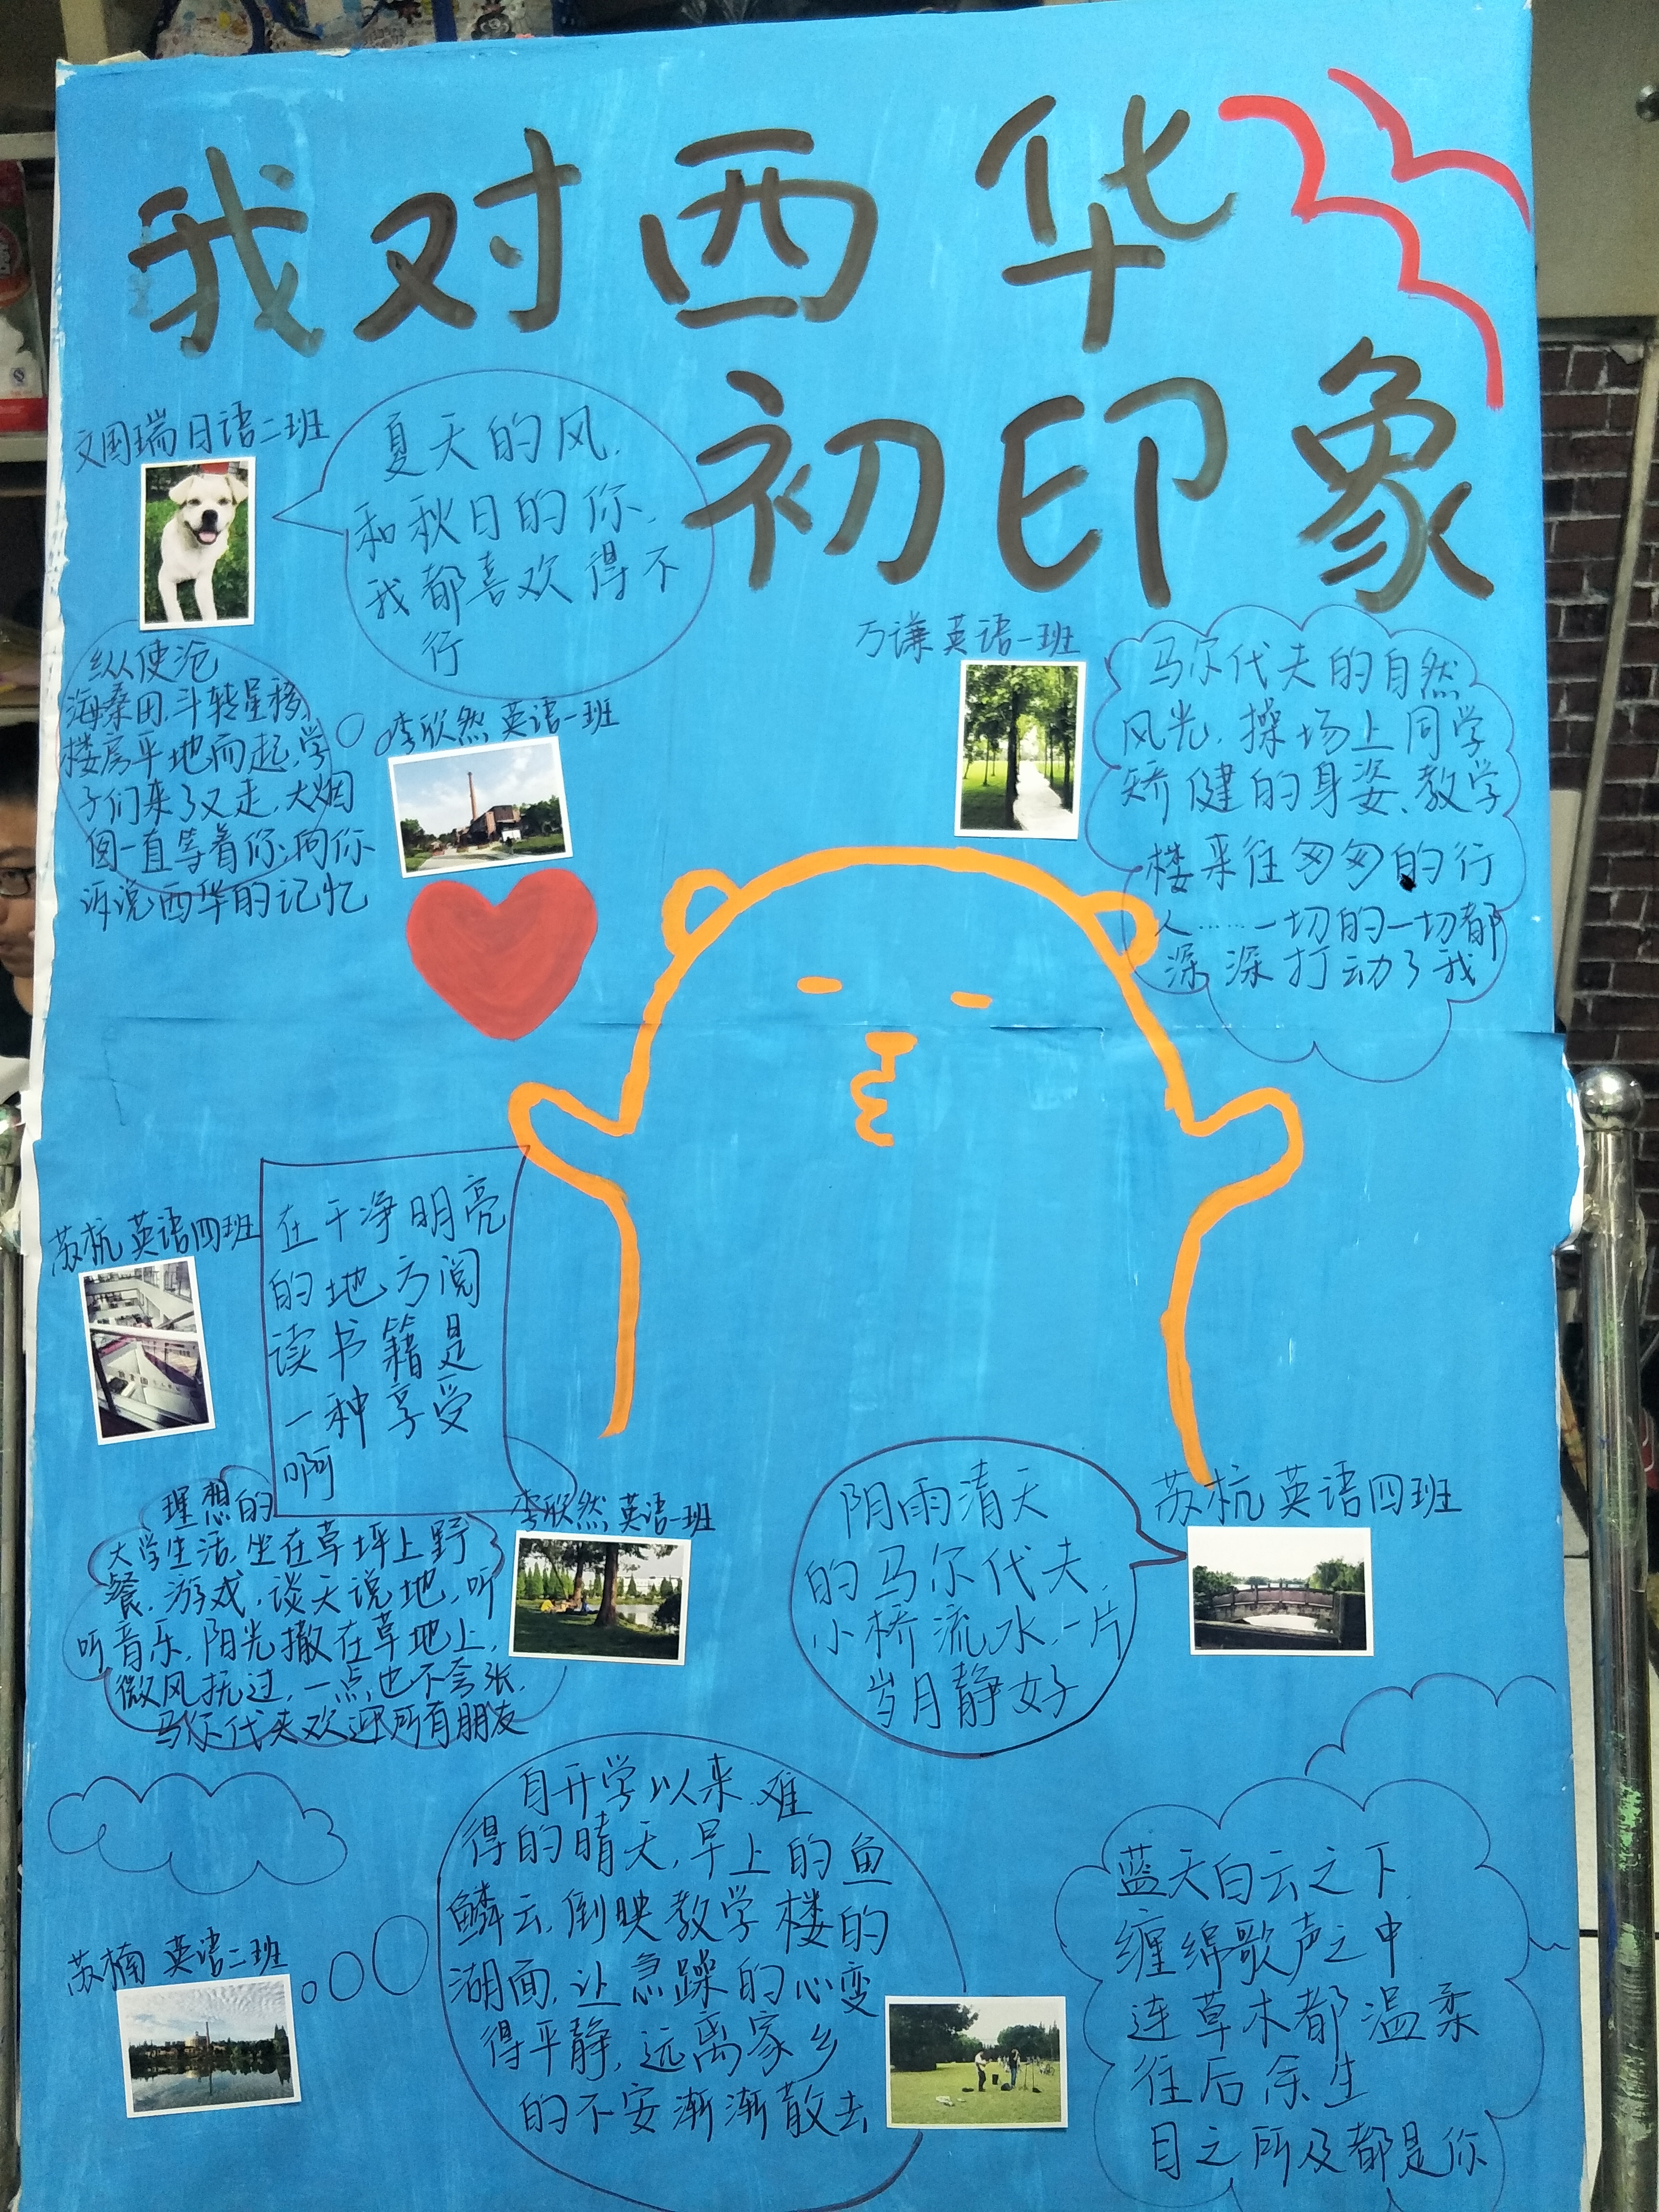 我对西华
初印象
文国瑞 日语二班
夏天的风,
和秋日的你,
我都喜欢得不
行
纵使沧
海桑田,斗转星移,
楼房平地而起,学
子们来了又走,大烟
囱一直等着你,向你
诉说西华的记忆
李欣然 英语一班
万谦 英语一班
马尔代夫的自然
风光,操场上同学
矫健的身姿、教学
楼来往匆匆的行
人……一切的一切都
深深打动了我
苏杭 英语四班
在干净明亮
的地方阅
读书籍是
一种享受
啊
理想的
大学生活,坐在草坪上野
餐,游戏,谈天说地,听
听音乐,阳光撒在草地上,
微风抚过,一点也不夸张,
马尔代夫欢迎所有朋友
李欣然 英语一班
阴雨清天
的马尔代夫,
小桥流水,一片
岁月静好
苏杭 英语四班
自开学以来,难
得的晴天,早上的鱼
鳞云,倒映教学楼的
湖面,让急躁的心变
得平静,远离家乡
的不安渐渐散去
苏楠 英语二班
蓝天白云之下,
缠绵歌声之中
连草木都温柔
往后余生
目之所及都是你